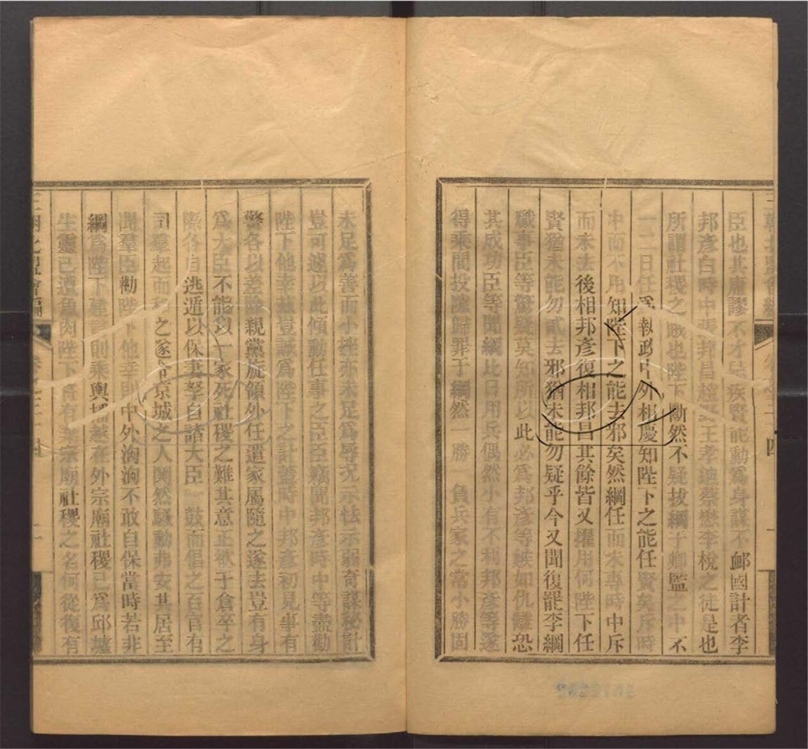 臣也其庸謬不才忌疾賢能動為身謀不䘏國計者李
邦彥白時中張邦昌趙野王孝迪蔡懋李梲之徒是也
所謂社稷之賊也陛下斷然不疑拔綱于卿監之中不
一二日任為執政中外相慶知陛下之能任賢矣斥時
中而不用知陛下之能去邪矣然綱任而未專時中斥
而未去後相邦彥復相邦昌其餘皆又擢用何陛下任
賢猶未能勿貳去邪猶未能勿疑乎今又聞復罷李綱
職事臣等驚疑莫知所以此必為邦彥等嫉如仇讎恐
其成功臣等聞綱比日用兵偶然小有不利邦彥等遂
得乘間投隙歸罪于綱然一勝一負兵家之常小勝固
未足為喜而小挫亦未足為辱况示怯示弱奇謀秘計
豈可遽以此傾動任事之臣臣竊聞邦彥時中等盡勸
陛下他幸茲豈誠為陛下之計哉時中邦彥初見事有
警各以差除親黨旋領外任遣家屬隨之遂去豈有身
為大臣不能以一家死社稷之難其意正欲于倉卒之
際各自逃遁以保妻孥自諸大臣一鼓而倡之百官有
司羣起而和之遂令京城之人閧然騷動弗安其居至
聞羣臣勸陛下他幸則中外洶洶不敢自保當時若非
綱為陛下建言則乘輿播越在外宗廟社稷已為邱墟
生靈已遭魚肉陛下會有宗廟社稷之名何從復有
三朝北盟會編